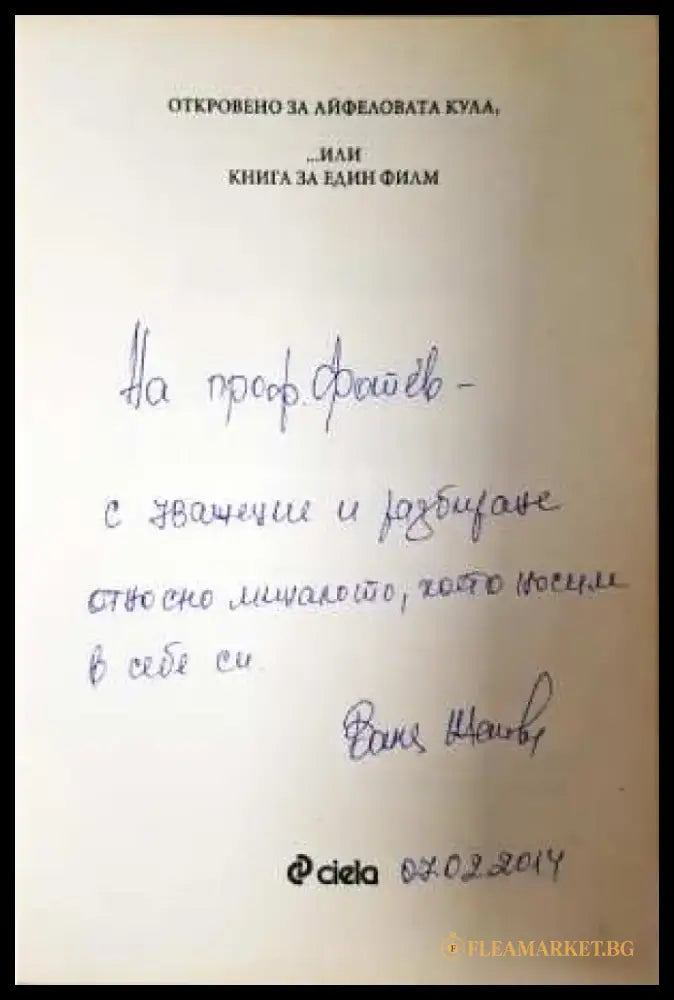 ОТКРОВЕНО ЗА АЙФЕЛОВАТА КУЛА,
...ИЛИ
КНИГА ЗА ЕДИН ФИЛМ
На проф. Фотев –
с уважение и разбиране
относно миналото, което носим
в себе си.
Ваня
ciela 07.02.2014
FLEAMARKET.BG